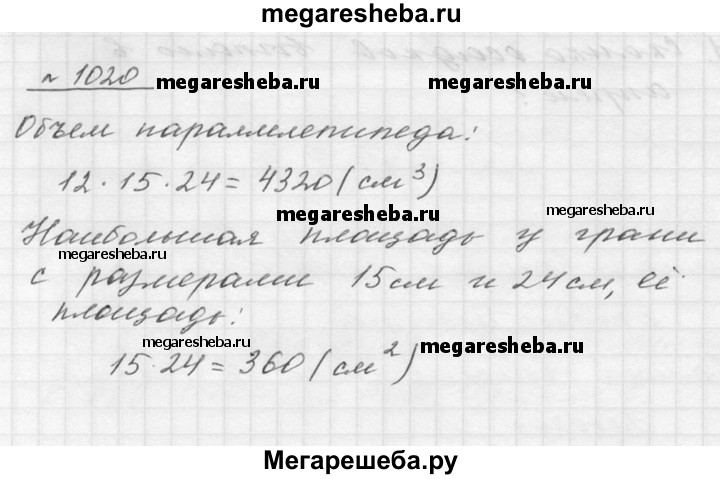 megaresheba.ru
№ 1020
megaresheba.ru
megaresheba.ru
Объем параллелепипеда:
12·15·24=4320(см³)
megaresheba.ru
megaresheba.ru
Наибольшая площадь у грани
megaresheba.ru
с размерами 15см и 24см, её
площадь:
megaresheba.ru
megaresheba.ru
15·24=360(см²)
Мегарешеба.ру